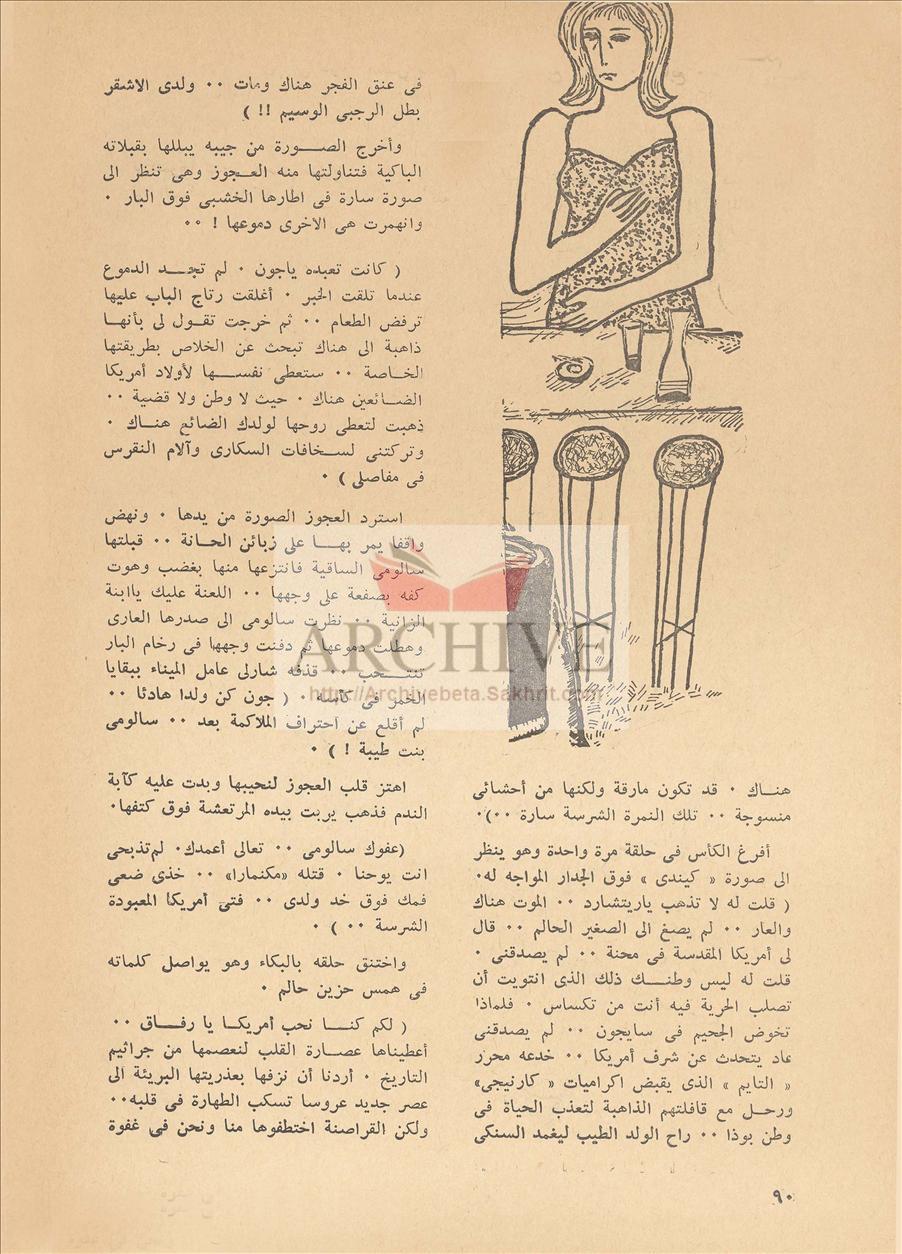 هنـاك ٠ قد تكون مارقة ولكنها من أحشائى
منسوجة ٠٠ تلك النمرة الشرسة سارة ٠٠)٠
أفرغ الكأس فى حلقة مرة واحدة وهو ينظر
الى صورة « كيندى » فوق الجدار المواجه له٠
( قلت له لا تذهب ياريتشارد ٠٠ الموت هناك
والعار ٠٠ لم يصغ الى الصغير الحالم ٠٠ قال
لى أمريكا المقدسة فى محنة ٠٠ لم يصدقنى ٠
قلت له ليس وطنـــك ذلك الذى انتويت أن
تصلب الحرية فيه أنت من تكساس ٠ فلماذا
تخوض الجحيم فى سايجون ٠٠ لم يصدقنى
عاد يتحدث عن شرف أمريكا ٠٠ خدعه محرر
« التايم » الذى يقبض اكراميات « كارنيجى»
ورحـل مع قافلتهم الذاهبة لتعذب الحياة فى
وطن بوذا ٠٠ راح الولد الطيب ليغمد السنكى
فى عنق الفجر هناك ومات ٠٠ ولدى الاشقر
بطل الرجبى الوسيم !! )
وأخرج الصـــورة من جيبه يبللها بقبلاته
الباكية فتناولتها منه العـجوز وهى تنظر الى
صورة سارة فى اطارها الخشبى فوق البار ٠
وانهمرت هى الاخرى دموعها ! ٠٠
( كانت تعبده ياجون ٠ لم تجـــد الدموع
عندما تلقت الخبر ٠ أغلقت رتاج الباب عليها
ترفض الطعام ٠٠ ثم خرجت تقـول لى بأنهـا
ذاهبة الى هناك تبحث عن الخلاص بطريقتها
الخـاصة ٠٠ ستعطى نفســـها لأولاد أمريكا
الضـائعين هناك ٠ حيث لا وطن ولا قضية ٠٠
ذهبت لتعطى روحها لولدك الضائع هنــاك ٠
وتركتنى لســخافات السكارى وآلام النقرس
فى مفاصلى ) ٠
استرد العجوز الصورة من يدها ٠ ونهض
واقفا يمر بهـــا على زبائن الحــانة ٠٠ قبلتها
سالومى الساقية فانتزعها منها بغضب وهوت
كفه بصفعة على وجهها ٠٠ اللعنة عليك ياابنة
الزانية ٠٠ نظرت سالومى الى صدرها العارى
وهطلت دموعها ثم دفنت وجهها فى رخام البار
تنتـــحب ٠٠ قذفه شارلى عامل الميناء ببقايا
الخمر فى كأسه ٠ ( جون كن ولدا هادئا ٠٠
لم أقلع عن احتراف الملاكمة بعد ٠٠ سالومى
بنت طيبة ! ) ٠
اهتز قلب العجوز لنحيبها وبدت عليه كآبة
الندم فذهب يربت بيده المرتعشة فوق كتفها٠
(عفوك سالومى ٠٠ تعالى أعمدك٠ لم تذبحى
انت يوحنا ٠ قتله «مكنمارا» ٠٠ خذى ضعى
فمك فوق خد ولدى ٠٠ فتى أمريكا المعبودة
الشرسة ٠٠ ) ٠
واختنق حلقه بالبكاء وهو يواصل كلماته
فى همس حزين حالم ٠
( لكم كنـــا نحب أمريكـا يا رفــاق ٠٠
أعطيناها عصـارة القلب لنعصمها من جراثيم
التاريخ ٠ أردنا أن نزفها بعذريتها البريئة الى
عصر جديد عروسا تسكب الطهارة فى قلبه٠٠
ولكن القراصنة اختطفوها منا ونحن فى غفوة
٩٠
ARCHIVE
http://Archivebeta.Sakhrit.com